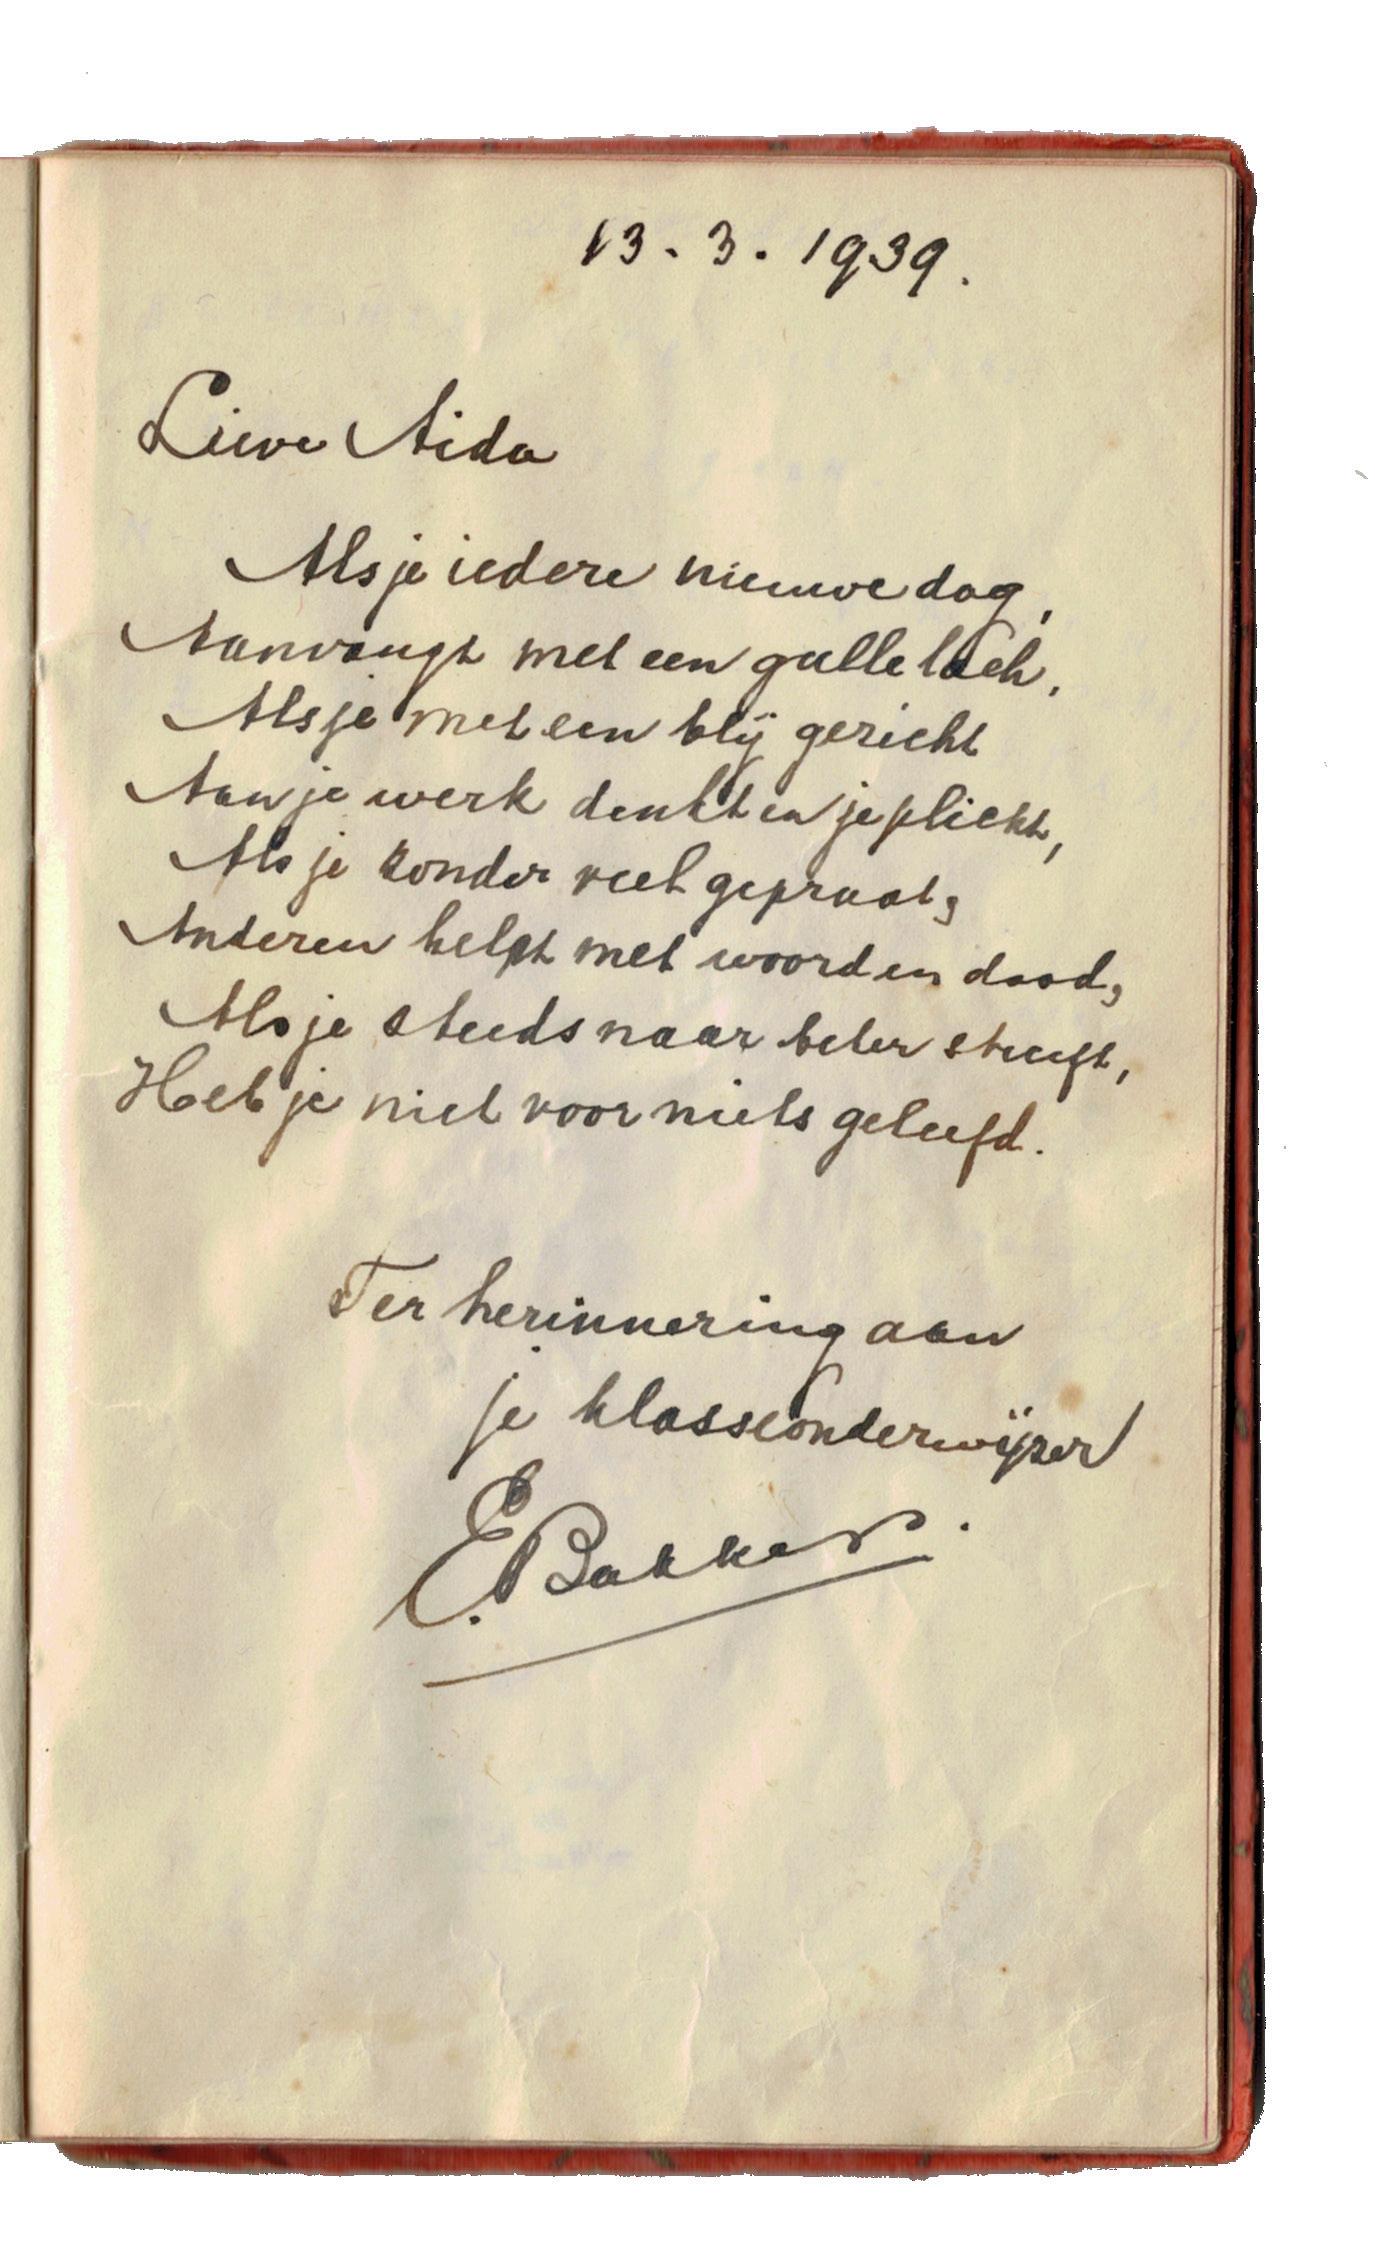 13. 3. 1939.
Lieve Aida
Als je iedere nieuwe dag,
Aanvangt met een gulle lach,
Als je met een blij gezicht
Aan je werk denkt en je plicht,
Als je zonder veel gepraat,
Anderen helpt met woord en daad,
Als je steeds naar beter streeft,
Heb je niet voor niets geleefd.
Ter herinnering aan
je klasseonderwijzer
E. Bakker.